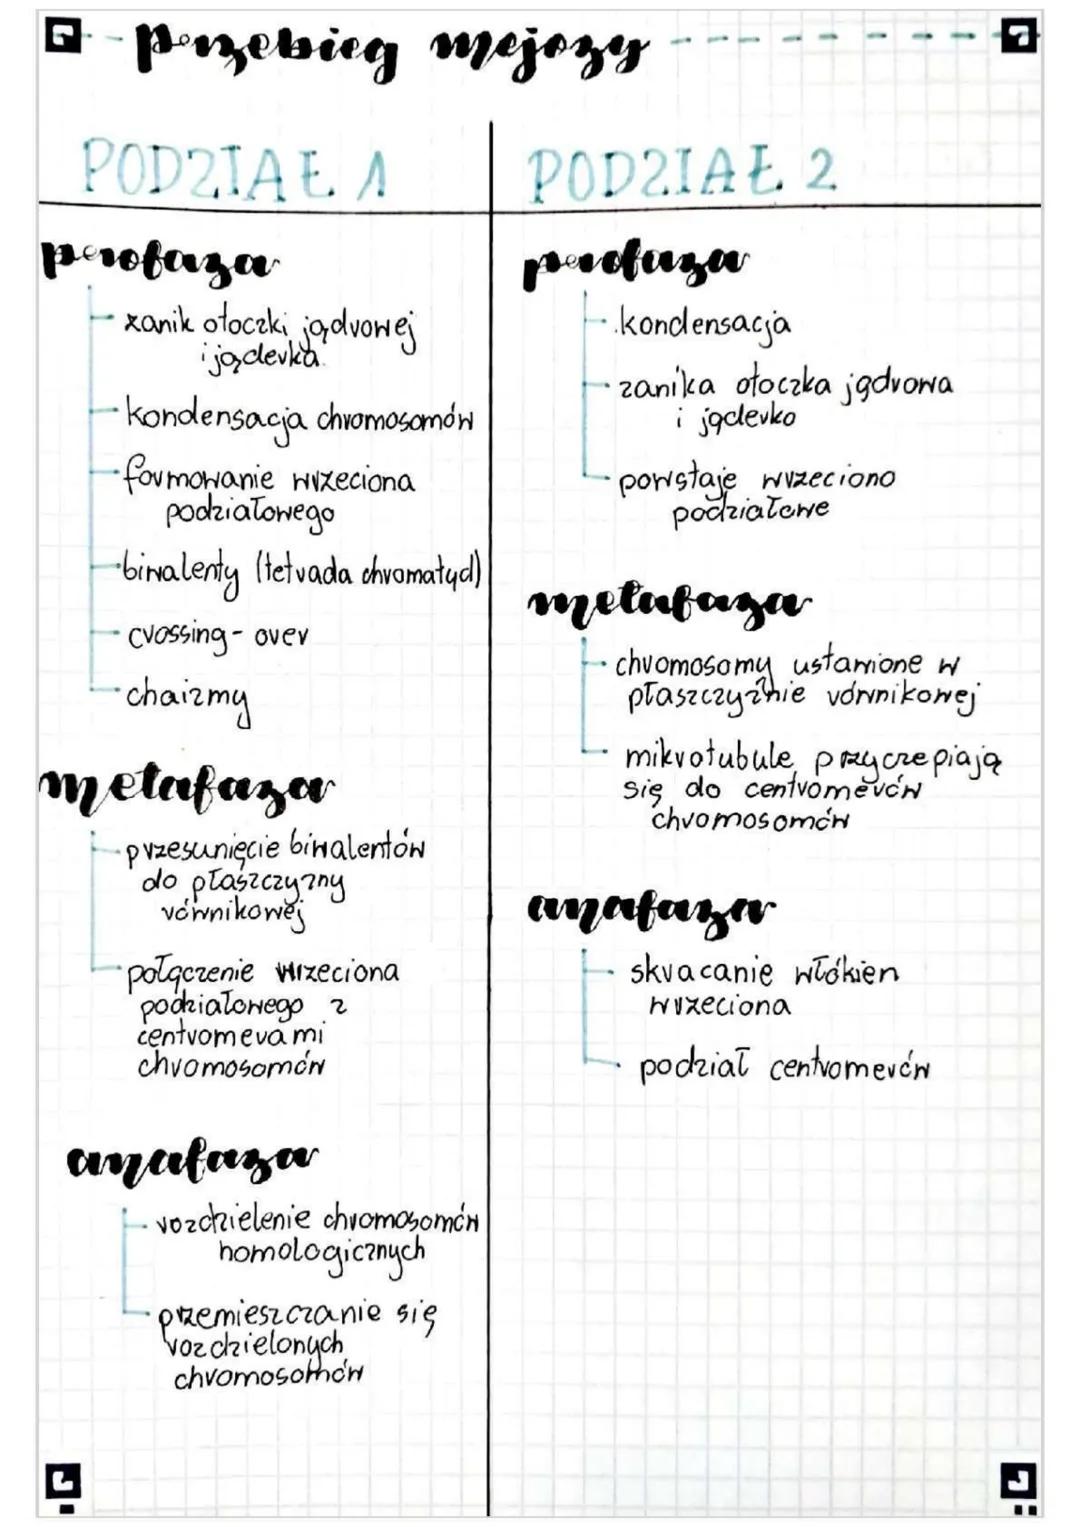 Przebieg mejozy
PODZIAŁ 1
profaza
- zanik otoczki jądrowej
i jąderka.
- kondensacja chromosomów
- formowanie wrzeciona
podziałowego
- biwalenty (tetrada chromatyd)
- crossing-over
- chaizmy
metafaza
- przesunięcie biwalentów
do płaszczyzny
równikowej
- połączenie wrzeciona
podziałowego z
centromerami
chromosomów
anafaza
- rozdzielenie chromosomów
homologicznych
- przemieszczanie się
rozdzielonych
chromosomów
PODZIAŁ 2
profaza
- kondensacja
- zanika otoczka jądrowa
i jąderko
- powstaje wrzeciono
podziałowe
metafaza
- chromosomy ustawione w
płaszczyźnie równikowej
- mikrotubule przyczepiają
się do centromerów
chromosomów
anafaza
- skracanie włókien
wrzeciona
- podział centromerów